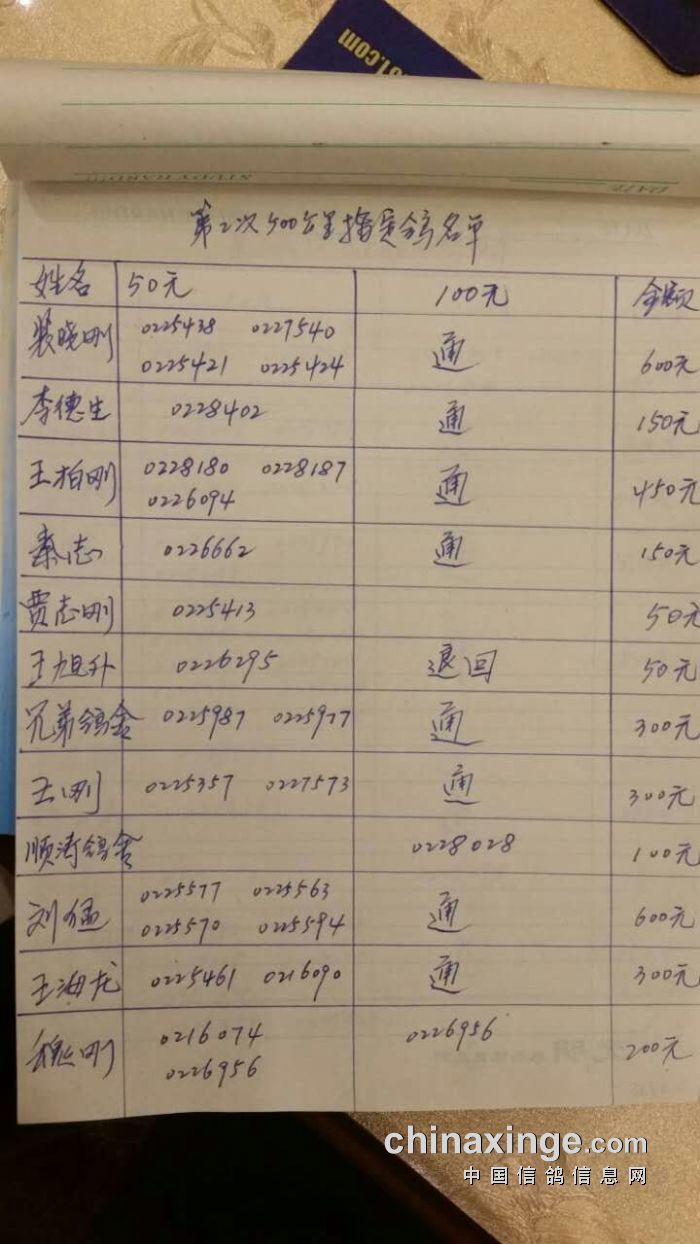 61.com
STUDY HARD
DATE
第2次500公里指定鸽名单
姓名 50元 100元 金额
裴晓刚 0225438 0227540 通 600元
0225421 0225424
李德生 0228402 通 150元
王柏刚 0228180 0228187 通 450元
0226094
秦志 0226662 通 150元
贾志刚 0225413 50元
王旭升 0226295 退回 50元
兄弟鸽舍 0225987 0225977 通 300元
王刚 0225357 0227573 通 300元
顺涛鸽舍 0228028 100元
刘猛 0225577 0225563 通 600元
0225570 0225594
王海龙 0225461 0216090 通 300元
魏刚 0216074 0226956 200元
0226956
chinaxinge.com
中国信鸽信息网